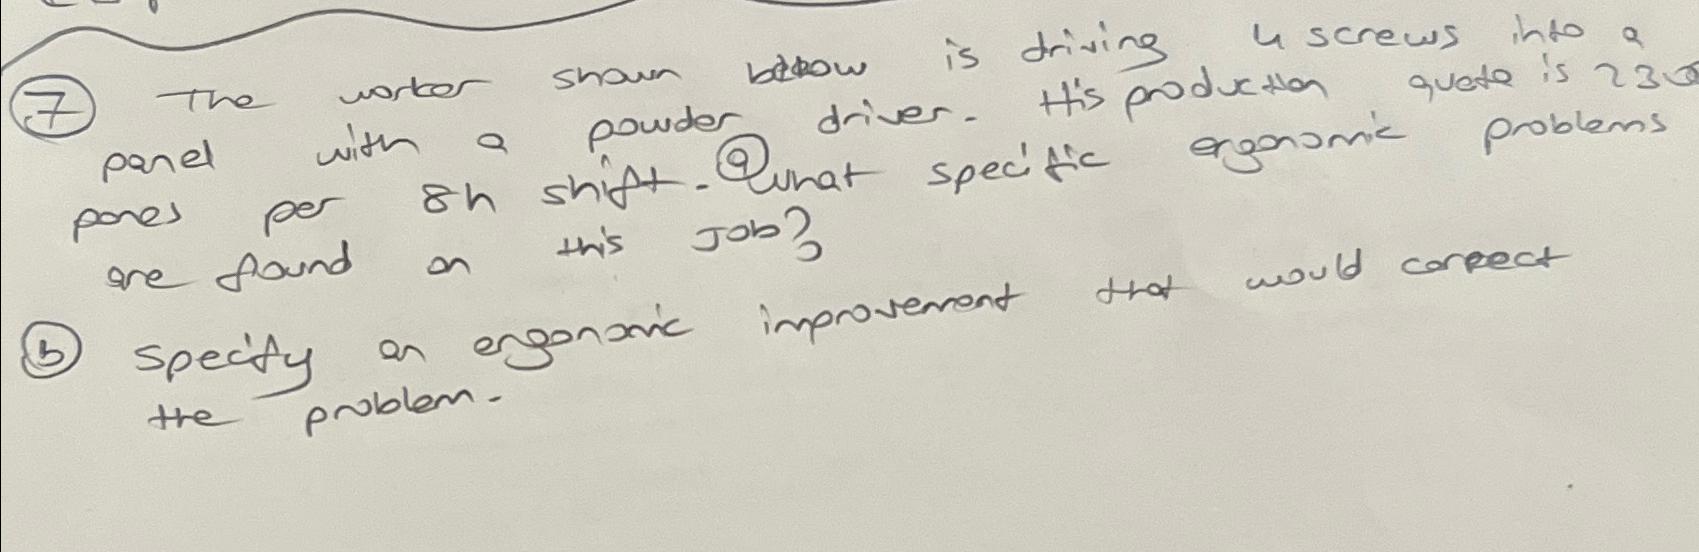 7 The worker shown below is driving 4 screws into a
panel with a powder driver. His production quota is 2300
panes per 8h shift. a What specific ergonomic problems
are found on this Job?
b Specify an ergonomic improvement that would correct
the problem.